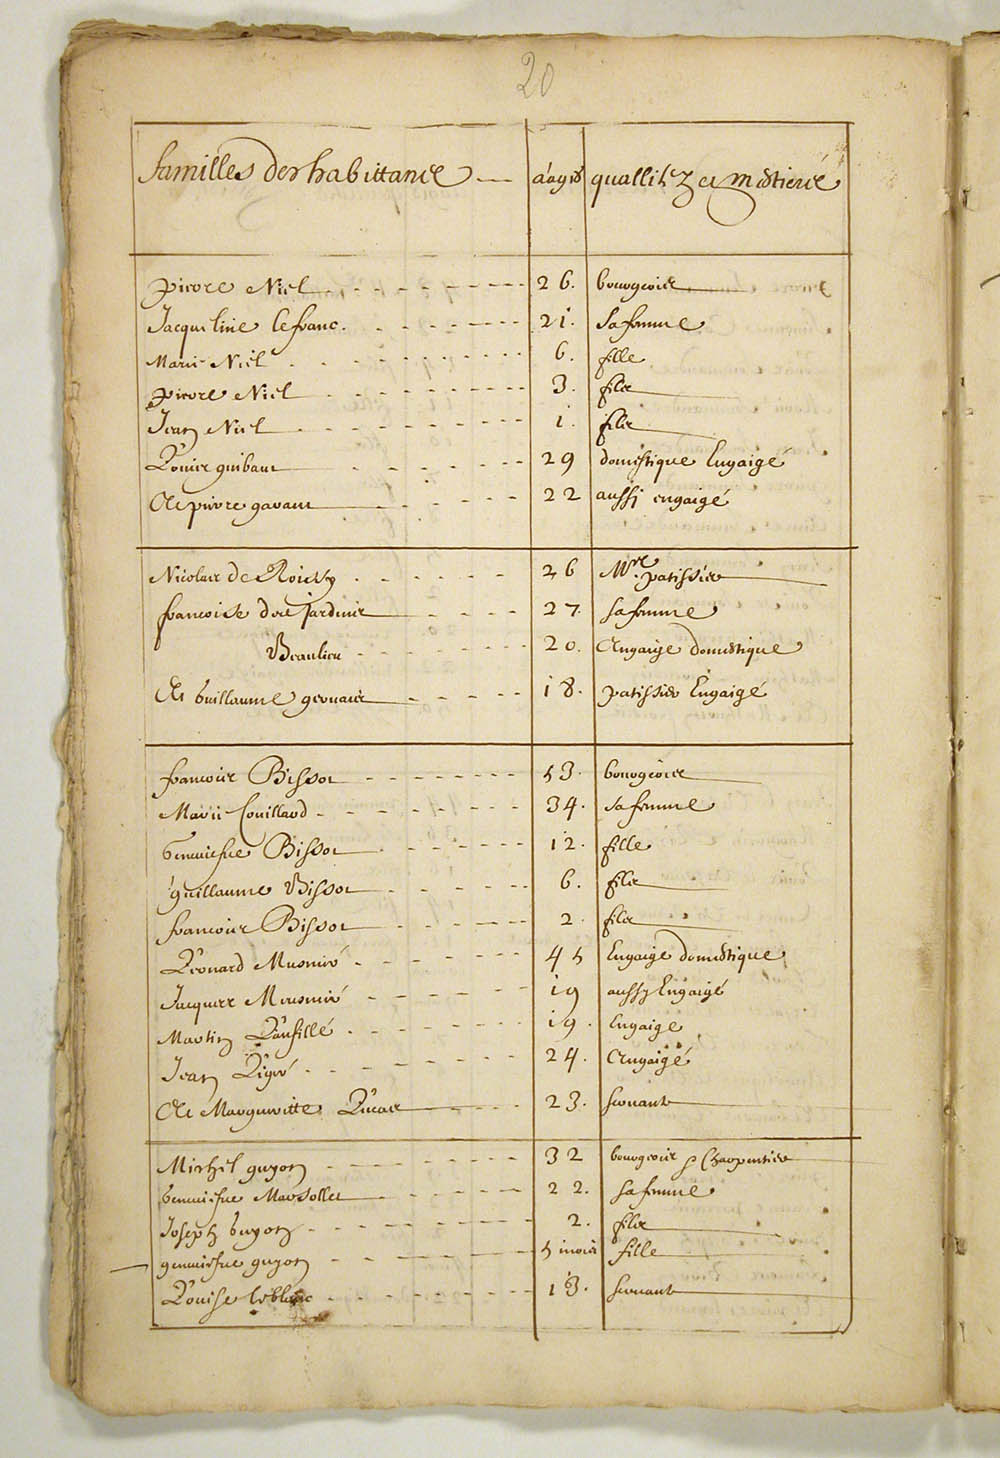 20
familles des habittans aages quallitez et mestiers
pierre Niel 26. bourgeois
Jacqueline lefranc. 21. sa femme
Marie Niel 6. fille
pierre Niel 3. fils
Jean Niel 1. fils
Louis guibaut 29 domestique Engaigé
Et pierre gavant 22 aussj engaigé
Nicolas de Roissy 26 Mre patissier
francoise des jardins 27. sa femme
Beaulieu 20. Engaigé domestique
Et Guillaume gervais 18. patissier Engaigé
francois Bissot 53. bourgeois
Marie Couillard 34. sa femme
Geneviefve Bissot 12. fille
guillaume Bissot 6. fils
francois Bissot 2. fils
Leonard Musnié 45 Engaigé domestique
Jacques Musnié 19 aussy Engaigé
Martin Laufillé 19. Engaigé
Jean Ligré 24. Engaigé
Et Margueritte Lucas 23. servante
Michel guyon 32 bourgeois Charpentier
Geneviefve Marsollet 22. sa femme
Joseph Guyon 2. fils
geneviefve guyon 5 mois fille
Louise leblanc 13. servante